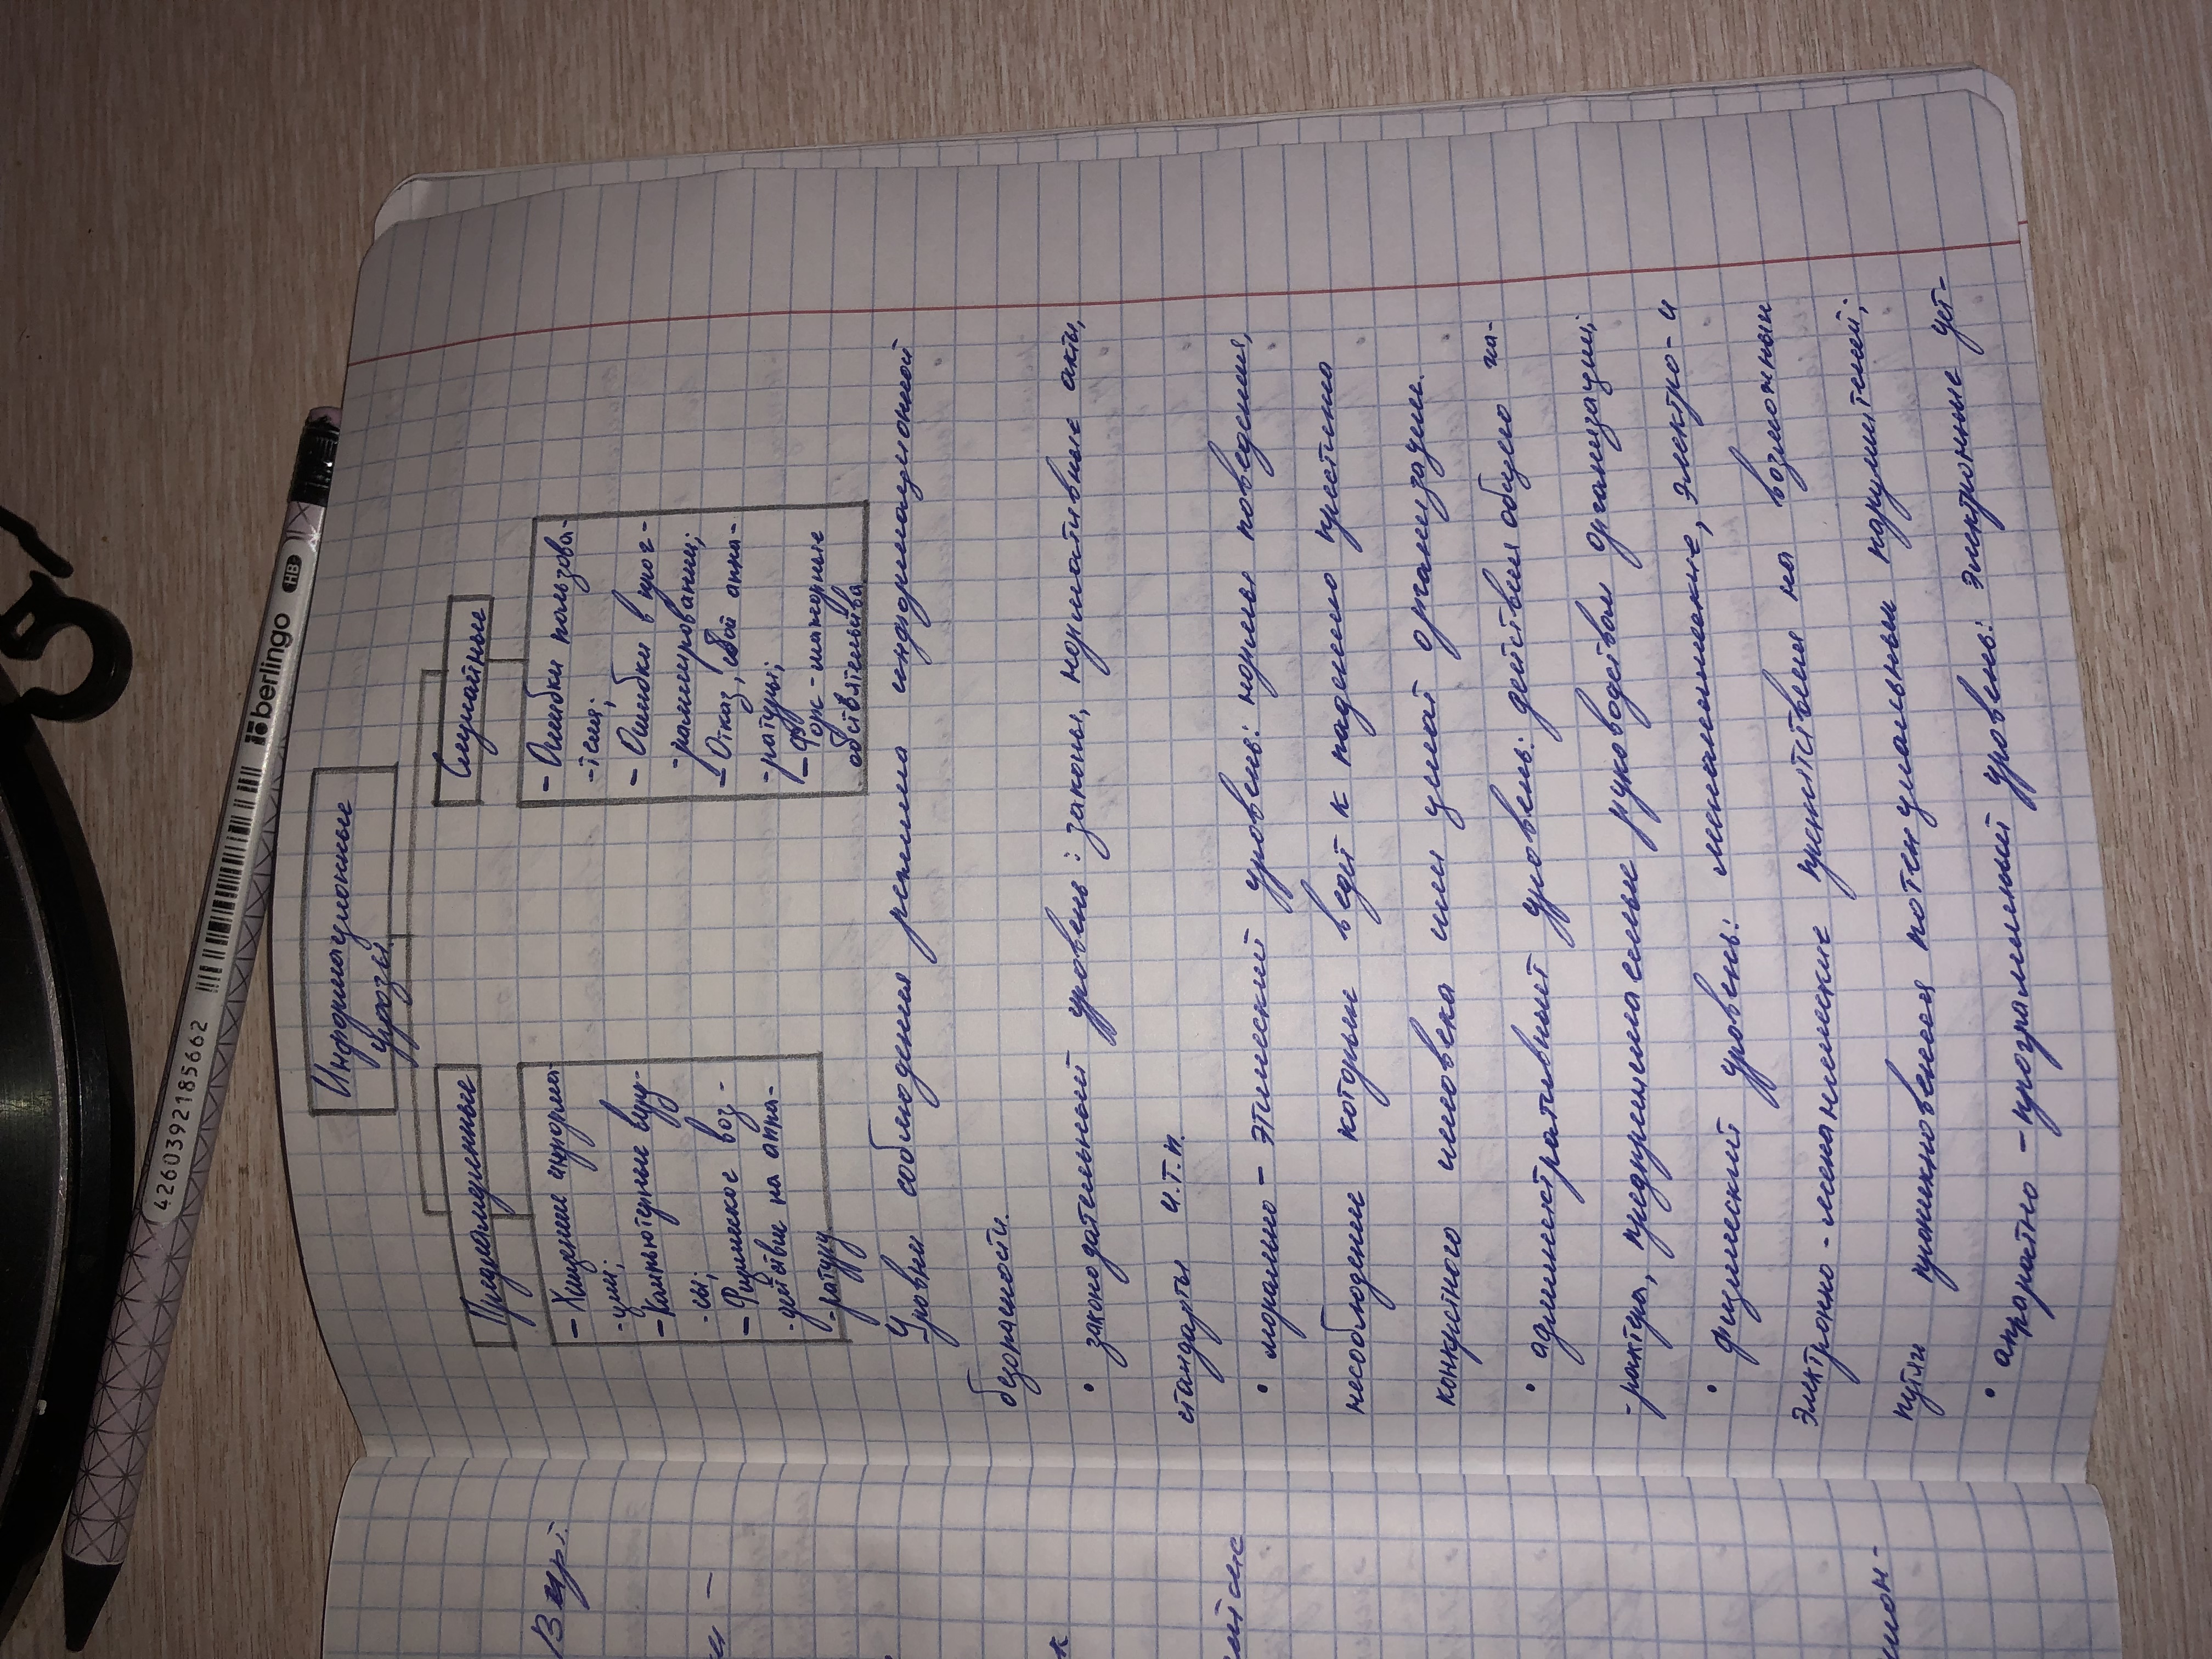 Информационные
угрозы
Преднамеренные
- Хищение информа
-ции;
- Компьютерные виру-
-сы;
- Физическое воз-
-действие на аппа-
-ратуру
Случайные
- Ошибки пользова-
-теля;
- Ошибки в прог-
-раммировании;
- Отказ, сбой аппа-
-ратуры;
- Форс-мажорные
обстоятельства
Уровни соблюдения режима информационной
безопасности.
• законодательный уровень: законы, нормативные акты,
стандарты и.т.п.
• морально - этический уровень: нормы поведения,
несоблюдение которых ведёт к падению престижа
конкретного человека или целой организации.
• административный уровень: действия общего ха-
-рактера, предпринимаемые руководством организации;
• физический уровень: механические, электро- и
электронно-механические препятствия на возможных
путях проникновения потенциальных нарушителей;
• аппаратно - программный уровень: электронные уст-
berlingo HB
4260392185662